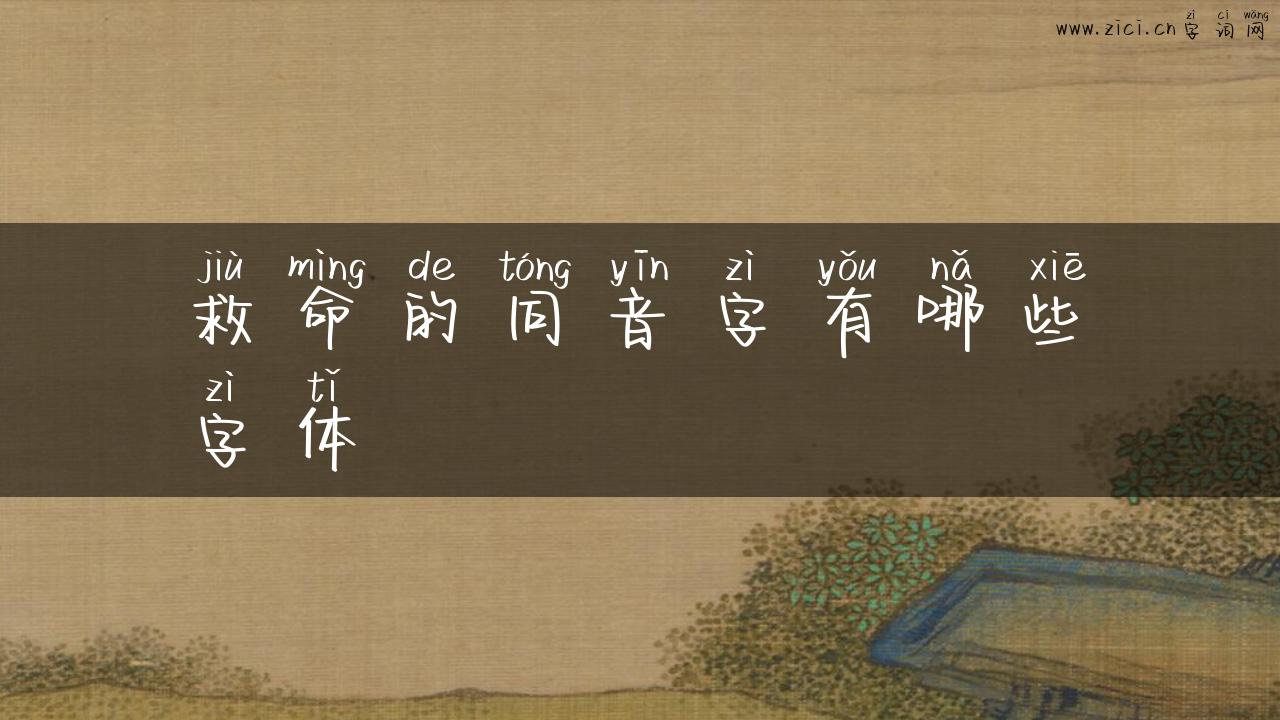 zì cì wǎng
www.zici.cn 字 词 网
jiù mìng de tóng yīn zì yǒu nǎ xiē
救 命 的 同 音 字 有 哪 些
zì tǐ
字 体